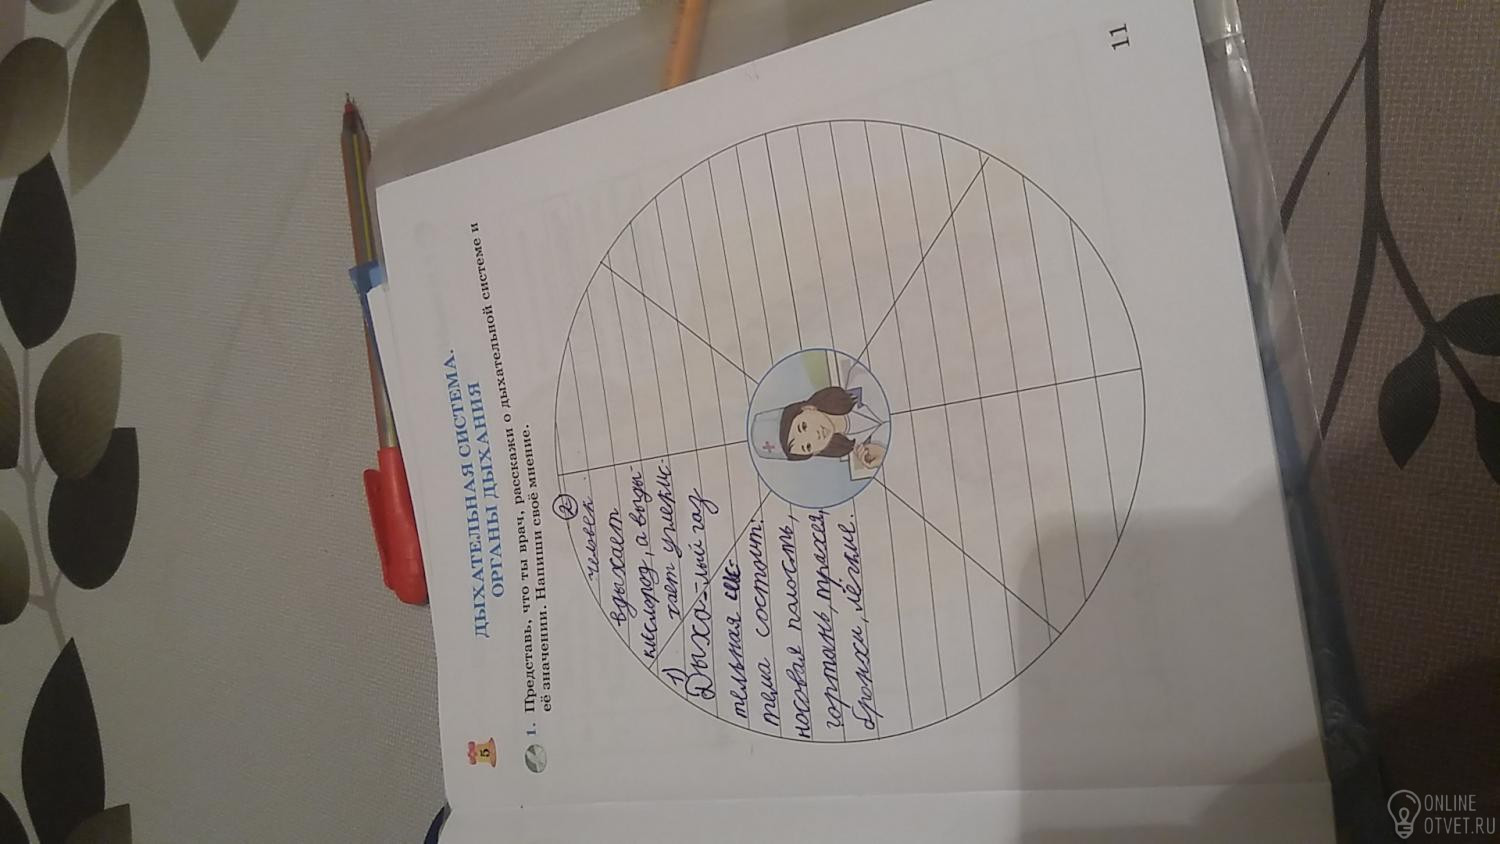 5
ДЫХАТЕЛЬНАЯ СИСТЕМА.
ОРГАНЫ ДЫХАНИЯ
1. Представь, что ты врач, расскажи о дыхательной системе и
её значении. Напиши своё мнение.
2
человек
вдыхает
кислород, а выды-
хает углекис-
лый газ
1)
Дыха-
тельная сис-
тема состоит:
носовая полость,
гортань, трахея,
бронхи, лёгкие.
11
ONLINE
OTVET.RU